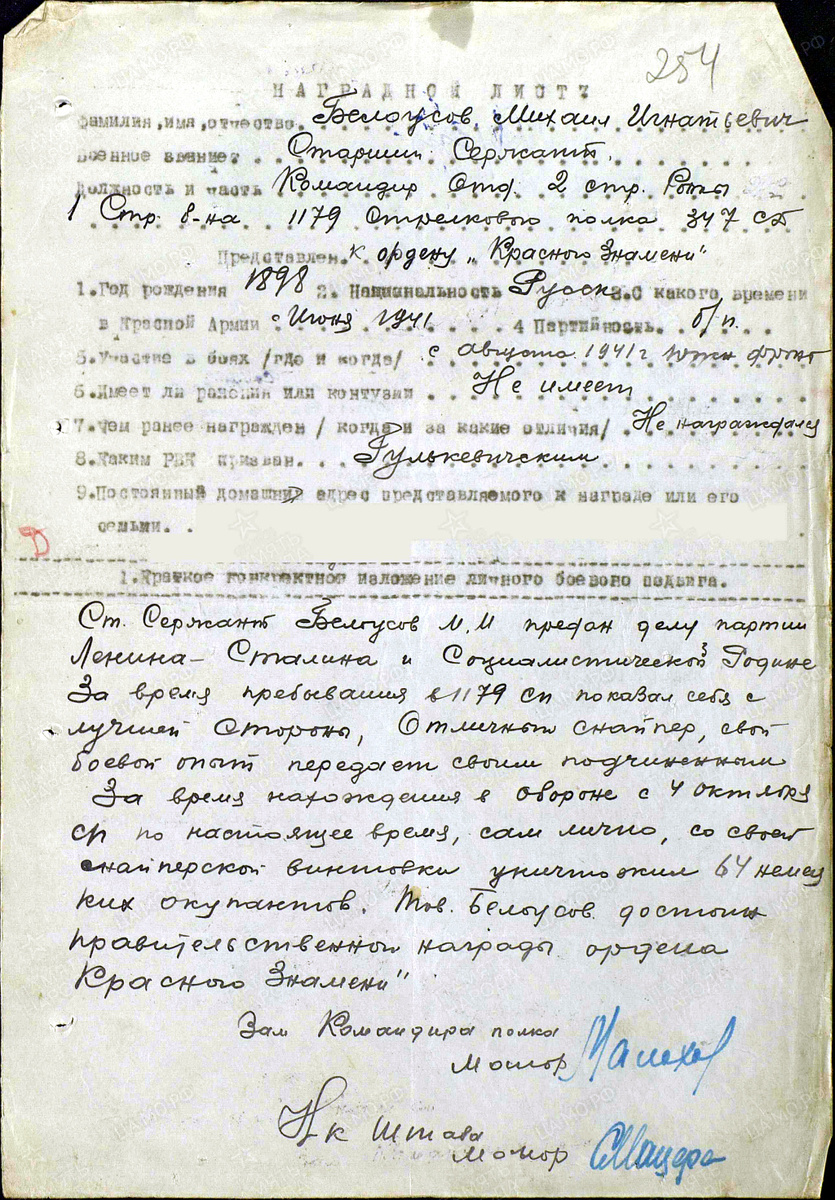 254
НАГРАДНОЙ ЛИСТ
фамилия,имя,отчество Белоусов Михаил Игнатьевич
Военное звание Старший Сержант.
Должность и часть Командир Отд. 2 стр. Роты
1 Стр. б-на 1179 Стрелкового полка 347 СД
Представлен к ордену „Красного Знамени"
1.Год рождения 1898 2. Национальность Русск 3.С какого времени
в Красной Армии с Июня 1941 4 Партийность. б/п.
5.Участие в боях /где и когда/ с августа 1941 г Южн фронт
6.Имеет ли ранения или контузии Не имеет
7.Чем ранее награжден / когда и за какие отличия/ Не награждался
8.Каким РВК призван Гулькевичским
9.Постоянный домашний адрес представляемого к награде или его
семьи.
1.Краткое конкретное изложение личного боевого подвига.
Ст. Сержант Белоусов М.И предан делу партии
Ленина-Сталина и Социалистической Родине
За время пребывания в 1179 сп показал себя с
лучшей стороны, Отличный снайпер, свой
боевой опыт передает своим подчиненным
За время нахождения в обороне с 4 октября
по настоящее время, сам лично, со своей
снайперской винтовки уничтожил 64 немец
ких окупантов. Тов. Белоусов достоин
правительственной награды ордена
Красного Знамени"
Зам Командира полка
Майор
Нк Штаба
Майор